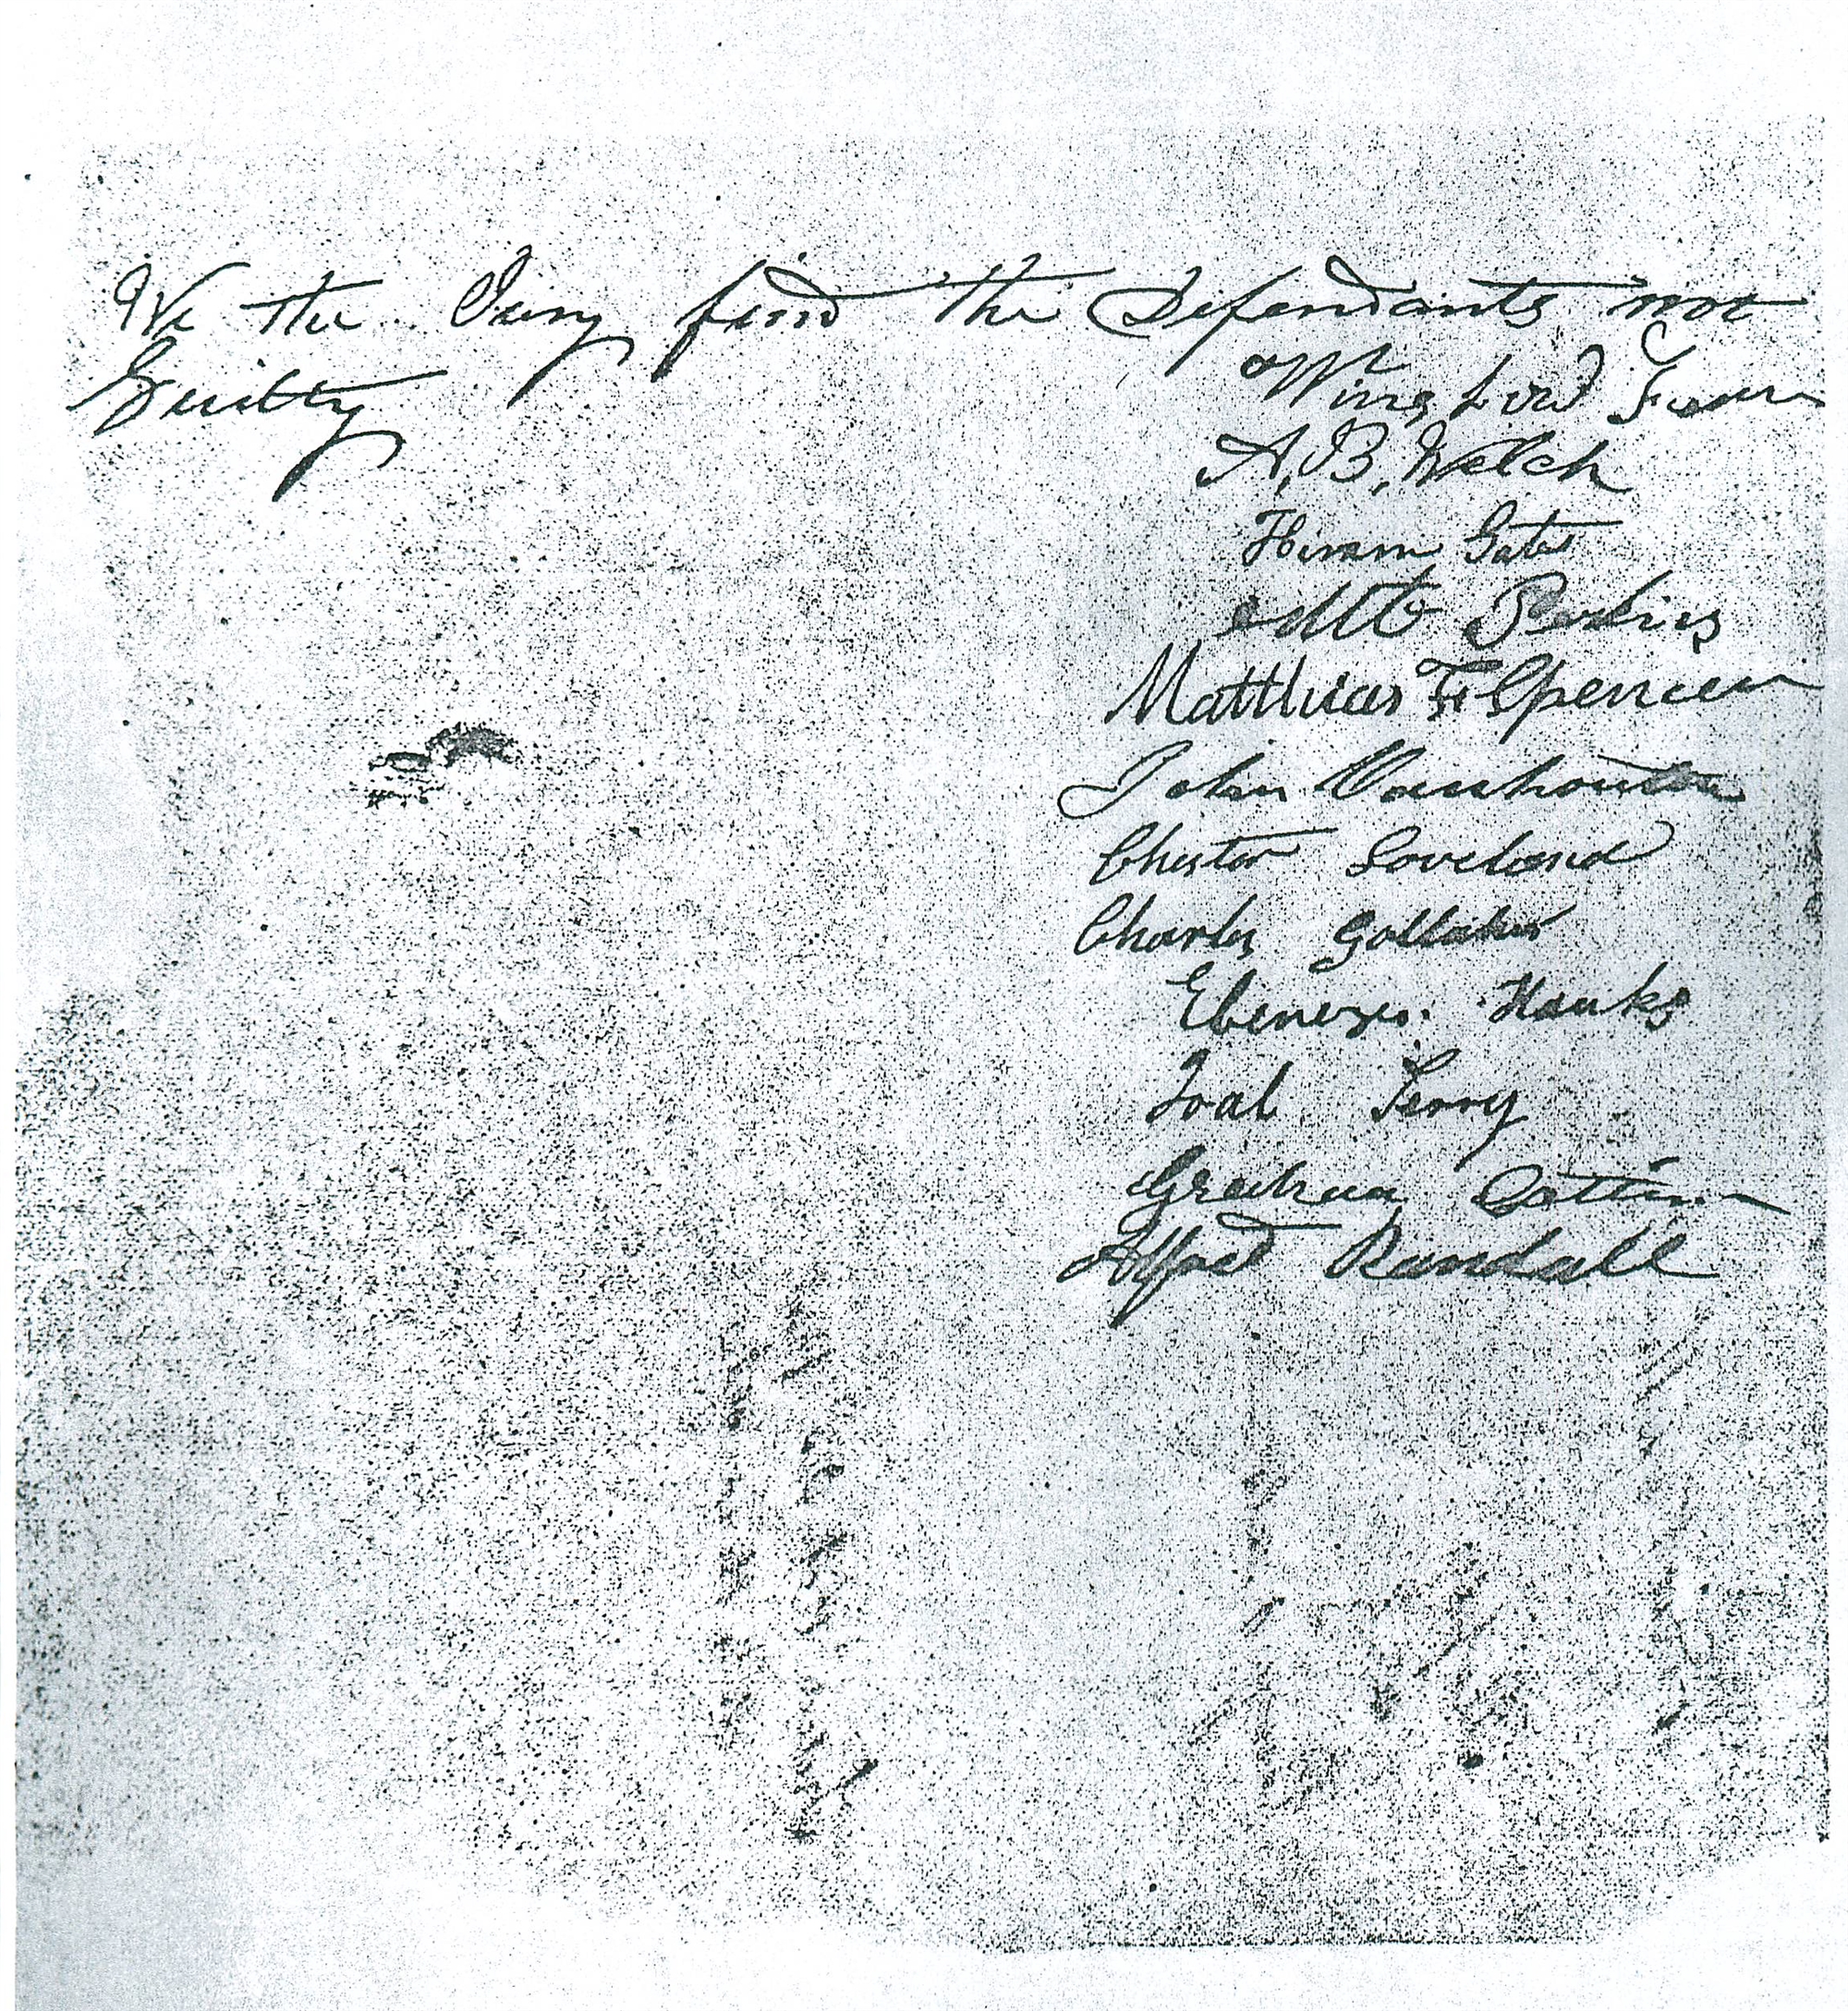 We the Jury find the Defendants not
Guilty
Lord
A. B. Welch
Hiram Gates
Matthias F Spencer
John Vanhouten
Chester Loveland
Charles
Ebenezer Hanks
Terry
Graham
Alfred Randall